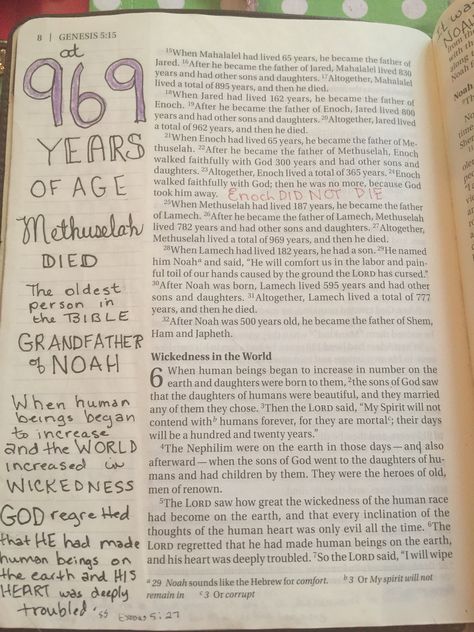 8 | GENESIS 5:15
at
969
YEARS
OF AGE
Methuselah
DIED
The oldest
person in
the BIBLE
GRANDFATHER
of NOAH
When human
beings began
to increase
and the WORLD
increased in
WICKEDNESS
GOD regretted
that HE had made
human beings on
the earth and HIS
HEART was deeply
troubled
5:27
15When Mahalalel had lived 65 years, he became the father of
Jared. 16After he became the father of Jared, Mahalalel lived 830
years and had other sons and daughters. 17Altogether, Mahalalel
lived a total of 895 years, and then he died.
18When Jared had lived 162 years, he became the father of
Enoch. 19After he became the father of Enoch, Jared lived 800
years and had other sons and daughters. 20Altogether, Jared lived
a total of 962 years, and then he died.
21When Enoch had lived 65 years, he became the father of Me-
thuselah. 22After he became the father of Methuselah, Enoch
walked faithfully with God 300 years and had other sons and
daughters. 23Altogether, Enoch lived a total of 365 years. 24Enoch
walked faithfully with God; then he was no more, because God
took him away. Enoch DID NOT DIE
25When Methuselah had lived 187 years, he became the father
of Lamech. 26After he became the father of Lamech, Methuselah
lived 782 years and had other sons and daughters. 27Altogether,
Methuselah lived a total of 969 years, and then he died.
28When Lamech had lived 182 years, he had a son. 29He named
him Noaha and said, “He will comfort us in the labor and pain-
ful toil of our hands caused by the ground the LORD has cursed.”
30After Noah was born, Lamech lived 595 years and had other
sons and daughters. 31Altogether, Lamech lived a total of 777
years, and then he died.
32After Noah was 500 years old, he became the father of Shem,
Ham and Japheth.
Wickedness in the World
6 When human beings began to increase in number on the
earth and daughters were born to them, 2the sons of God saw
that the daughters of humans were beautiful, and they married
any of them they chose. 3Then the LORD said, “My Spirit will not
contend withb humans forever, for they are mortalc; their days
will be a hundred and twenty years.”
4The Nephilim were on the earth in those days—and also
afterward—when the sons of God went to the daughters of hu-
mans and had children by them. They were the heroes of old,
men of renown.
5The LORD saw how great the wickedness of the human race
had become on the earth, and that every inclination of the
thoughts of the human heart was only evil all the time. 6The
LORD regretted that he had made human beings on the earth,
and his heart was deeply troubled. 7So the LORD said, “I will wipe
a 29 Noah sounds like the Hebrew for comfort. b 3 Or My spirit will not
remain in c 3 Or corrupt